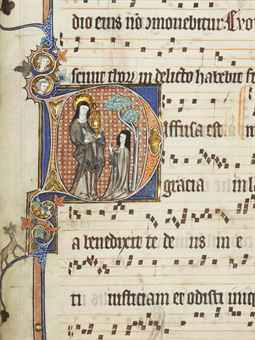 dio eius nō ɔmouebitur Euo
sciuit thoꝝ in delicto habebit f
Diffusa est
gracia in la
a benedixit te de us in e
ti iusticiam et odisti iniq